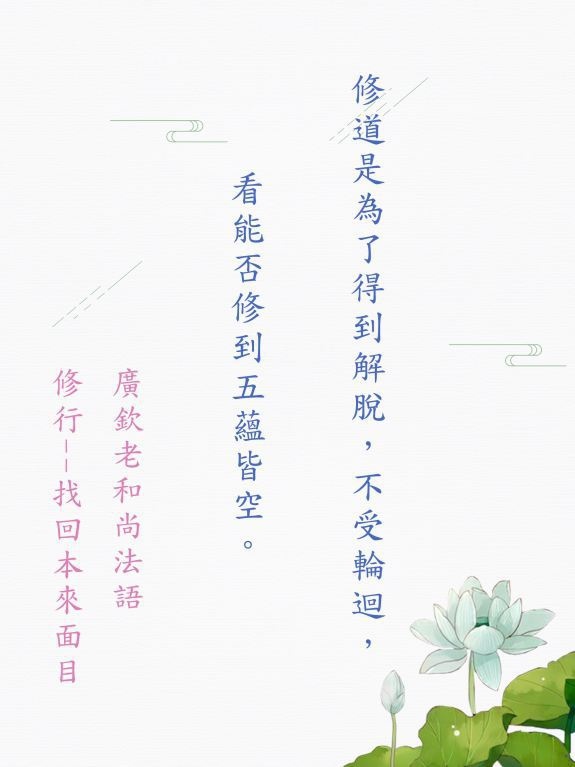 修道是為了得到解脫，不受輪迴，
看能否修到五蘊皆空。
廣欽老和尚法語
修行--找回本來面目